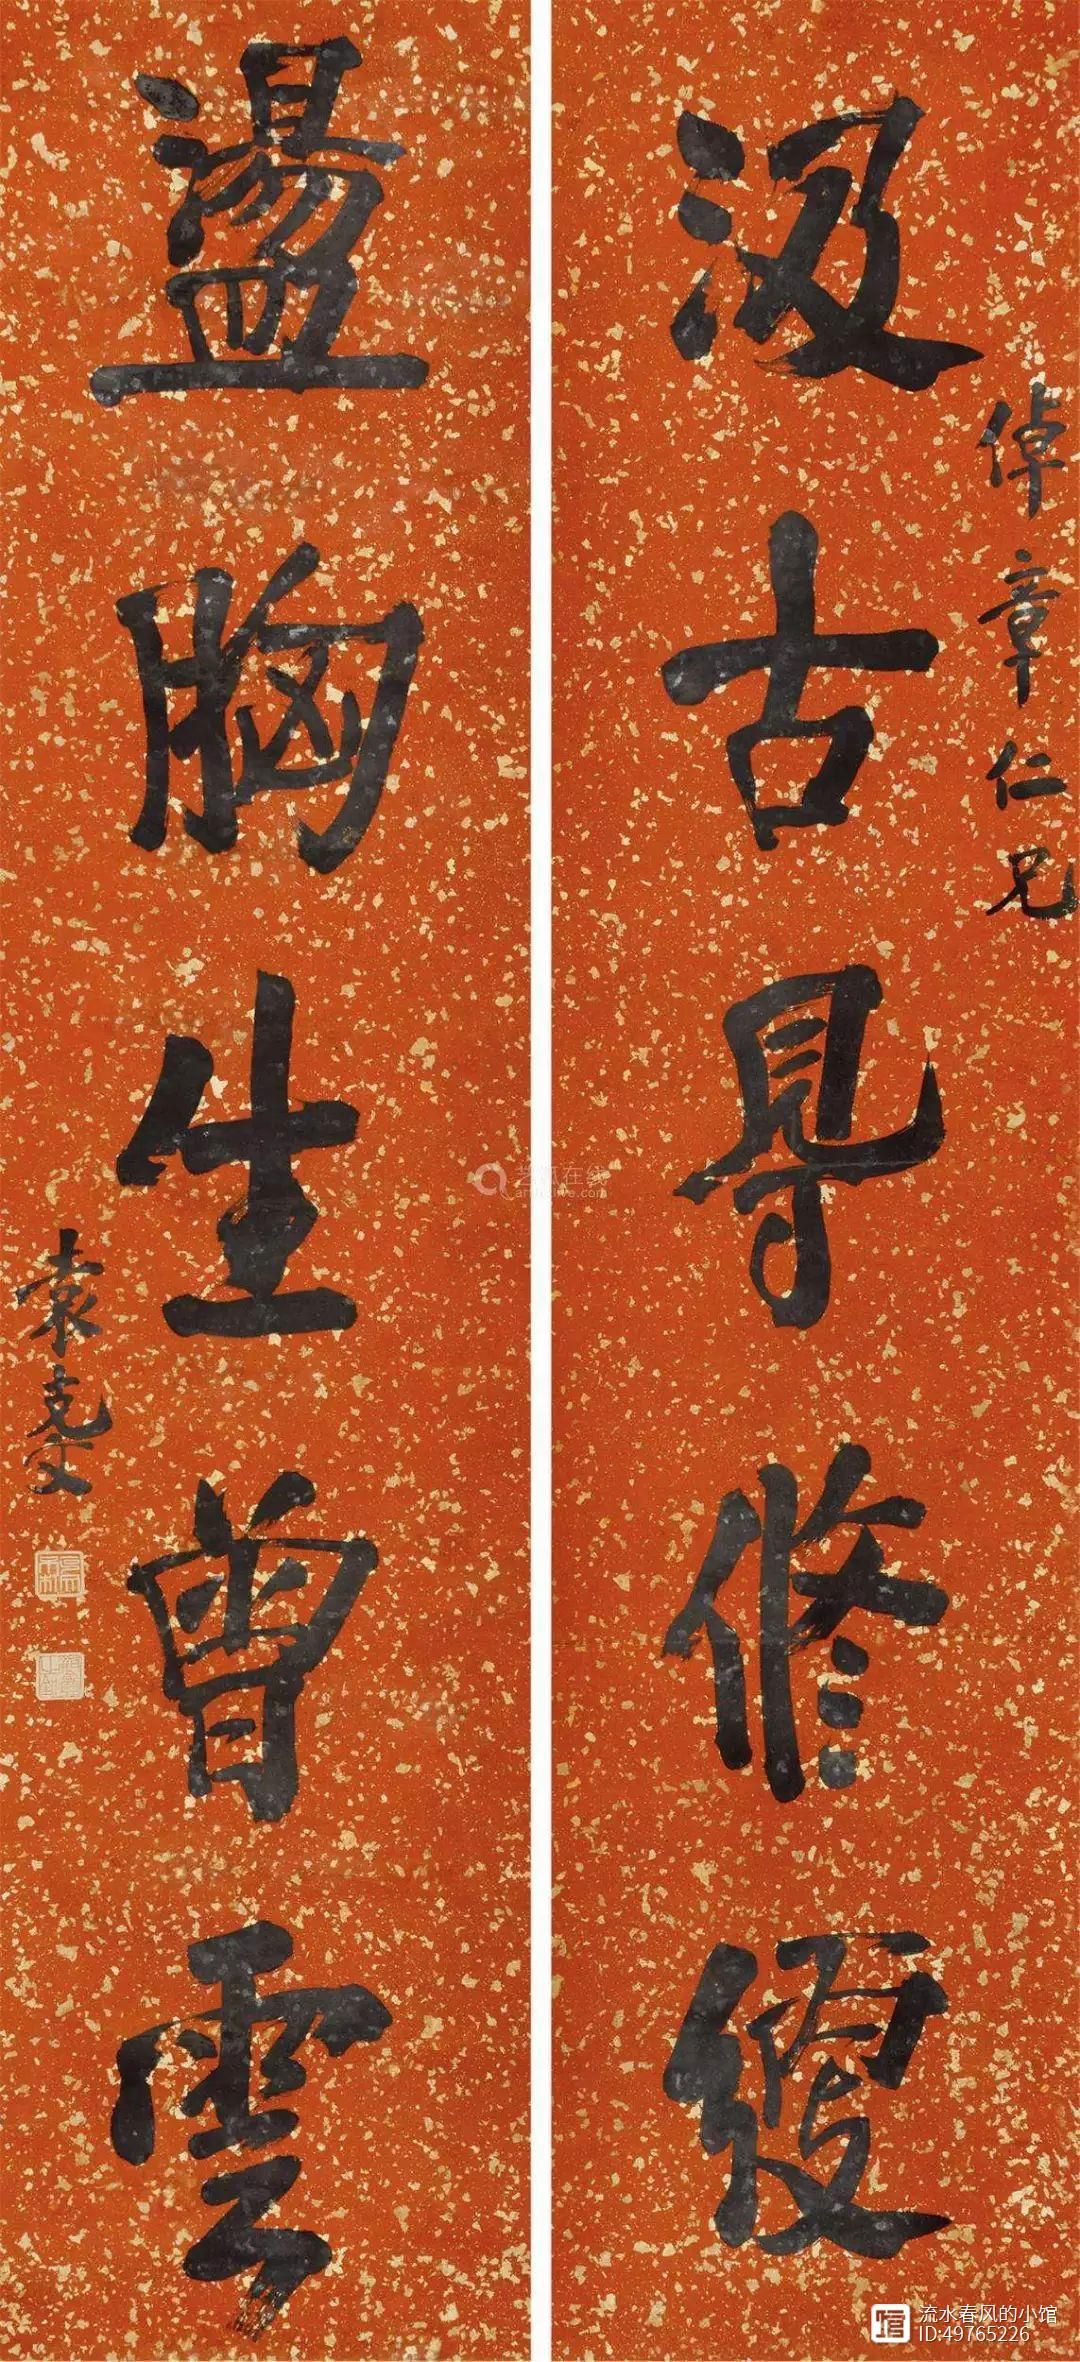 倬章仁兄
汲古㝵修綆
盪胸生曾雲
袁克文
艺狐在线
artfoxlive.com
流水春风的小馆
ID:49765226